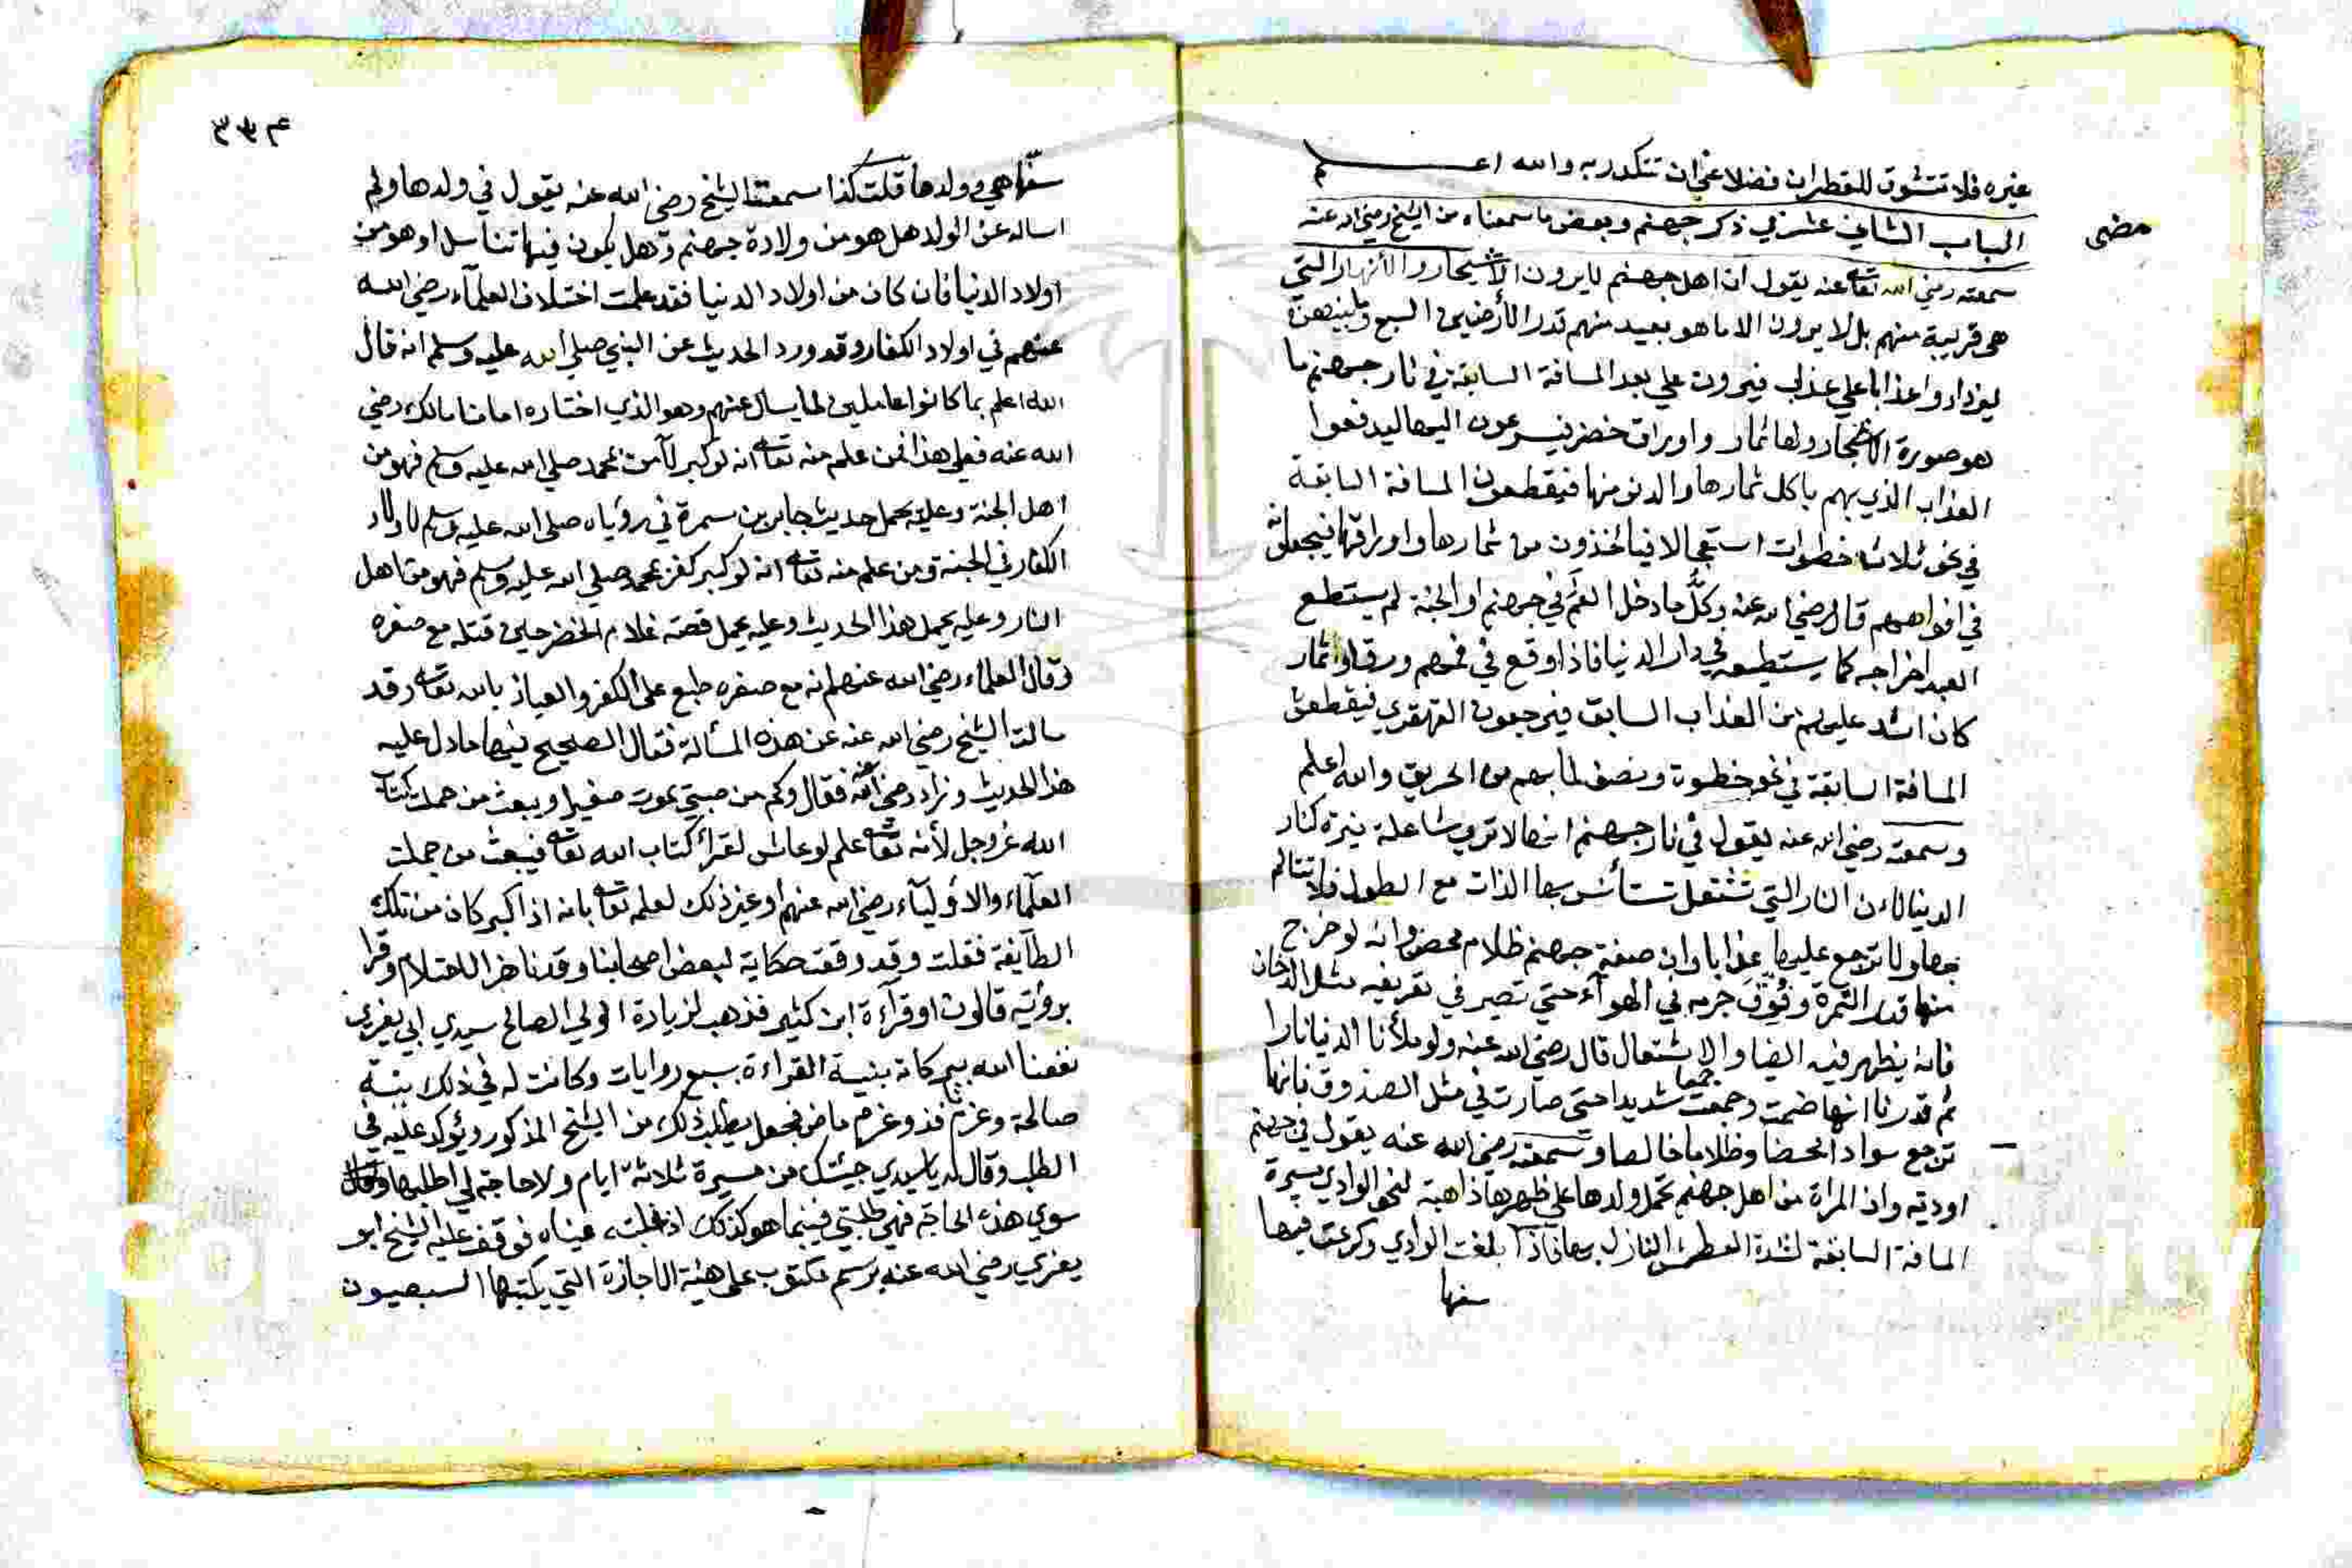 غيره فلا تتشوق للقطران فضلا عن ان تتكدر به والله اعلم
مضى
الباب الثاني عشر في ذكر جهنم وبعض ما سمعناه من الشيخ رضي الله عنه
سمعته رضي الله تعالى عنه يقول ان اهل جهنم لا يرون الاشجار والأنهار التي
هي قريبة منهم بل لا يرون الا ما هو بعيد منهم قدر الأرضين السبع وما بينهن
ليزدادوا عذابا على عذاب فيرون على بعد المسافة السابقة في نار جهنم ما
هو صورة الاشجار ولها ثمار واوراق خضر فيسرعون اليها ليدفعوا
العذاب الذي بهم باكل ثمارها والدنو منها فيقطعون المسافة السابقة
في نحو ثلاث خطوات استعجالا فيأخذون من ثمارها واوراقها فيجعلونه
في افواههم قال رضي الله عنه وكل ما دخل الفم في جهنم او الجنة لم يستطع
العبد اخراجه كما يستطيعه في دار الدنيا فاذا وقع في فمهم ورق او ثمار
كان اشد عليهم من العذاب السابق فيرجعون القهقرى فيقطعون
المسافة السابقة في نحو خطوة ونصف لما بهم من الحريق والله اعلم
وسمعته رضي الله عنه يقول في نار جهنم انها لا ترى شاعلة نيرة كنار
الدنيا لاءن النار التي تشتعل تستأنس بها الذات مع الطول فلا تتالم
بها ولا ترجع عليها عذابا وان صفة جهنم ظلام محض وانه لو خرج
منها قدر التمرة وفرق جرمه في الهوآء حتى تصير في تفريقه مثل الدخان
فانه يظهر فيه الضيا والاشتعال قال رضي الله عنه ولو ملأنا الدنيا نارا
ثم قدرنا انها ضمت وجمعت جمعا شديدا حتى صارت في مثل الصندوق فانها
ترجع سوادا محضا وظلاما خالصا وسمعته رضي الله عنه يقول في جهنم
اودية وان المراة من اهل جهنم تحمل ولدها على ظهرها ذاهبة لنحو الوادي مسيرة
المسافة السابقة لشدة العطش النازل بها فاذا بلغت الوادي وكرعت فيها
سنها
٣٣٤
هي وولدها قلت كذا سمعت الشيخ رضي الله عنه يقول في ولدها ولم
اساله عن الولد هل هو من ولادة جهنم وهل يكون فيها تناسل او هو من
اولاد الدنيا فان كان من اولاد الدنيا فقد علمت اختلاف العلمآء رضي الله
عنهم في اولاد الكفار وقد ورد الحديث عن النبي صلى الله عليه وسلم انه قال
الله اعلم بما كانوا عاملين لما يسال عنهم وهو الذي اختاره امامنا مالك رضي
الله عنه فعلى هذا فمن علم منه تعالى انه لو كبر لآمن بمحمد صلى الله عليه وسلم فهو من
اهل الجنة وعليه يحمل حديث جابر بن سمرة في رؤياه صلى الله عليه وسلم لاولاد
الكفار في الجنة ومن علم منه تعالى انه لو كبر كفر بمحمد صلى الله عليه وسلم فهو من اهل
النار وعليه يحمل هذا الحديث وعليه يحمل قصة غلام الخضر حين قتله مع صغره
وقال العلماء رضي الله عنهم انه مع صغره طبع على الكفر والعياذ بالله تعالى وقد
سالت الشيخ رضي الله عنه عن هذه المسألة فقال الصحيح فيها ما دل عليه
هذا الحديث وزاد رضي الله عنه فقال وكم من صبي يموت صغيرا ويبعث من حملت كتاب
الله عز وجل لأنه تعالى علم لو عاش لقرأ كتاب الله تعالى فيبعث من جملت
العلمآء والاوليآء رضي الله عنهم او غير ذلك لعلمه تعالى بانه اذا كبر كان من تلك
الطآيفة فقلت وقد وقعت حكاية لبعض اصحابنا وقد ناهز الاحتلام وقرا
برواية قالون او قرآءة ابن كثير فذهب لزيارة الولي الصالح سيدي ابي يعزى
نفعنا الله ببركاته بنية القراءة بسبع روايات وكانت له في ذلك نية
صالحة وعزم نافذ وغرم ماض فجعل يطلب ذلك من الشيخ المذكور ويؤكد عليه في
الطلب وقال له يا سيدي جيئتك من مسيرة ثلاثة ايام ولا حاجة لي اطلبها
سوى هذه الحاجة فهي طلبتي فبينما هو كذلك اذ غلبته عيناه فوقف عليه الشيخ ابو
يعزى رضي الله عنه برسم مكتوب على هيئة الاجازة التي يكتبها السبعيون